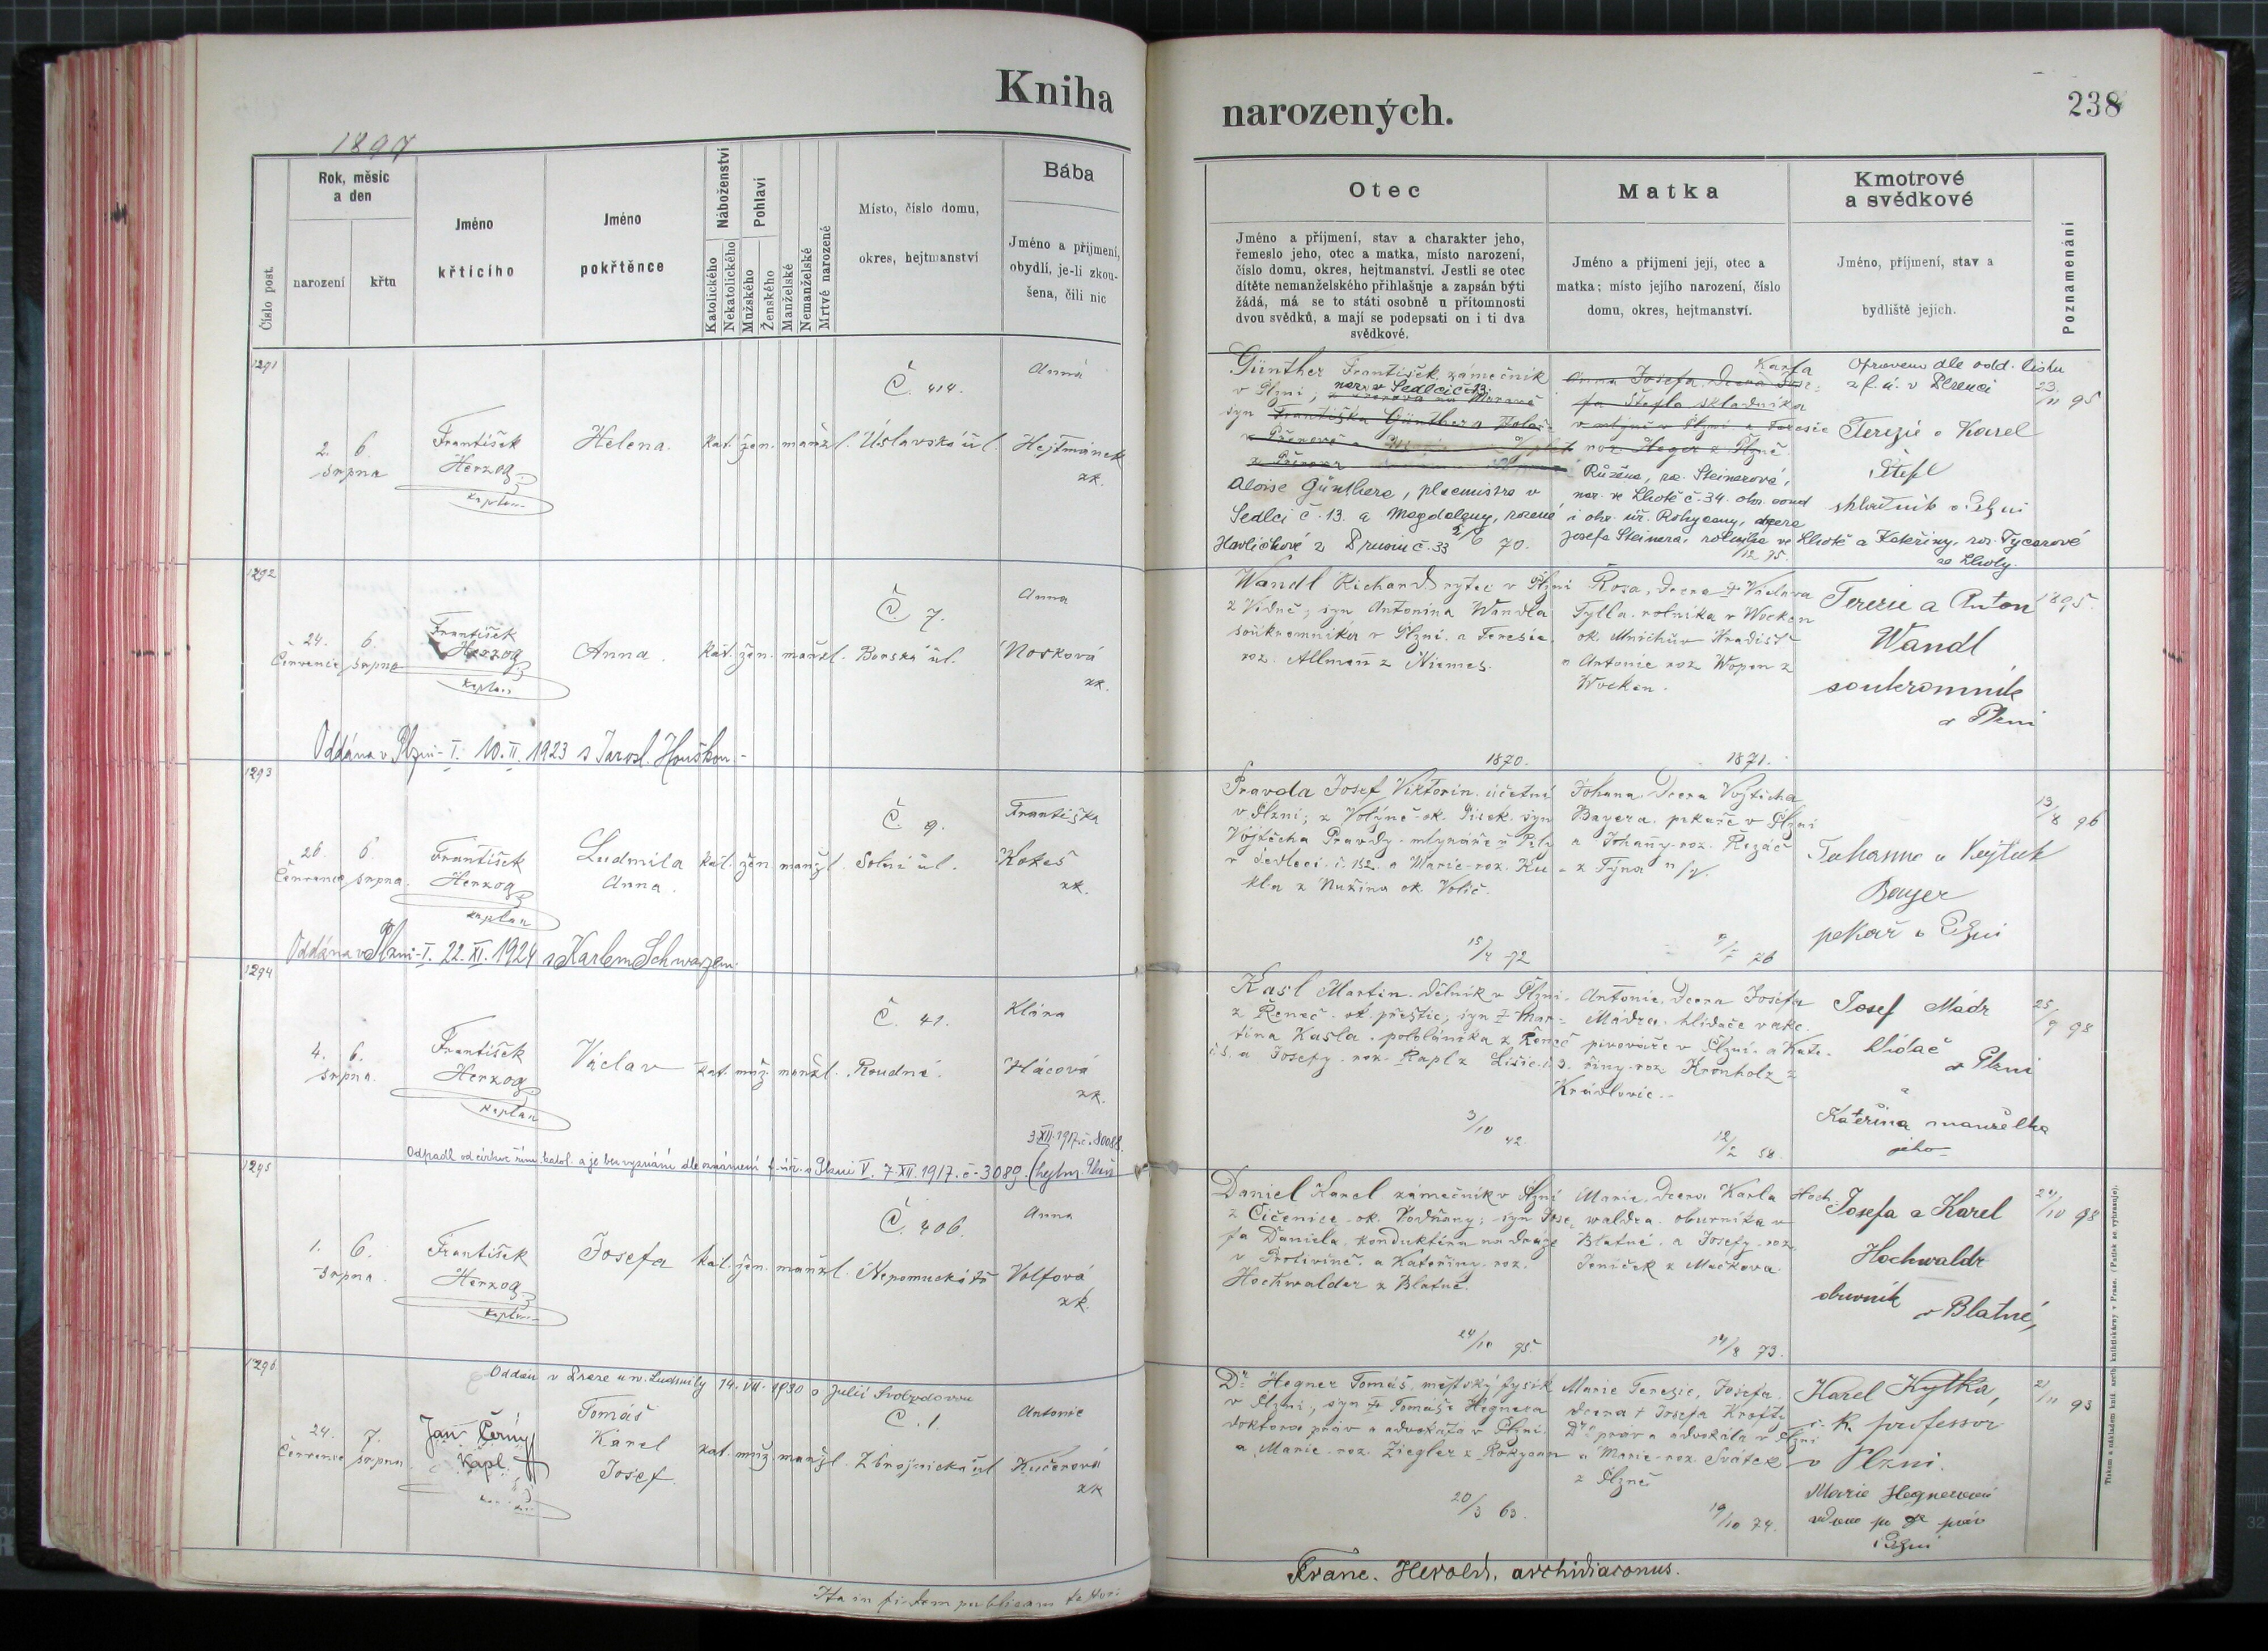 Kniha
narozených.
238
1897
Číslo post.
Rok, měsíc
a den
narození
křtu
Jméno
křtícího
Jméno
pokřtěnce
Náboženství
Katolického
Nekatolického
Pohlaví
Mužského
Ženského
Manželské
Nemanželské
Mrtvé narozené
Místo, číslo domu,
okres, hejtmanství
Bába
Jméno a příjmení,
obydlí, je-li zkou-
šena, čili nic
Otec
Jméno a příjmení, stav a charakter jeho,
řemeslo jeho, otec a matka, místo narození,
číslo domu, okres, hejtmanství. Jestli se otec
dítěte nemanželského přihlašuje a zapsán býti
žádá, má se to státi osobně u přítomnosti
dvou svědků, a mají se podepsati on i ti dva
svědkové.
Matka
Jméno a příjmení její, otec a
matka; místo jejího narození, číslo
domu, okres, hejtmanství.
Kmotrové
a svědkové
Jméno, příjmení, stav a
bydliště jejich.
Poznamenání
1291
2. 6.
srpna
František
Herzog
kaplan
Helena.
kat. žen. manžl.
Č. 414.
Úslavská ul.
Anna
Hejtmánek
zk.
Günther František, zámečník
v Plzni, nar. v Sedlci č. 13.
syn Františka Günthera
Aloise Günthera, placmistra v
Sedlci č. 13. a Magdaleny, rozené
Havlíčkové z č. 33 2/6 70.
Anna Josefa, dcera Jose-
fa Štefla skladníka
v Plzni a Terezie
roz. Heger z Plzně.
Růžena, roz. Steinerová,
nar. ve Lhotě č. 34. okr. soud
i okr. úř. Rokycany, dcera
Josefa Steinera, rolníka ve Lhotě a Kateřiny, roz. Tycarové
ze Lhoty.
12 75.
Opraveno dle odd. listu
z f. ú. v Plzenci
23/11 95
Terezie a Karel
Štefl
skladník v Plzni
1292
24. 6.
Července srpna
František
Herzog
kaplan
Anna.
kat. žen. manžl.
Č. 7.
Borská ul.
Anna
Nosková
zk.
Wandl Richard rytec v Plzni
z Vídně; syn Antonína Wandla
soukromníka v Plzni a Terezie
roz. Allmann z Niemes.
1870.
Rosa, dcera † Václava
Tylla, rolníka v Wocken
ok. Mnichův Hradiště
a Antonie roz. Wopen z
Wocken.
1871.
Terezie a Anton
Wandl
soukromník
v Plzni
1895.
Oddána v Plzni-I. 10. II. 1923 s Jarosl. Houškou.-
1293
26. 6.
Července srpna.
František
Herzog
kaplan
Ludmila
Anna.
kat. žen. manžl.
Č. 9.
Solní ul.
Františka
Kokeš
zk.
Pravda Josef Viktorin, účetní
v Plzni; z Volyně ok. Písek, syn
Vojtěcha Pravdy mlynáře
v Sedleci č. 152. a Marie roz. Ku-
kla z Nužína ok. Volic.
15/4 72
Johana, dcera Vojtěcha
Bayera, pekaře v Plzni
a Johany roz. Řezáč
z Týna n/V.
76
Johanna a Vojtěch
Bayer
pekař v Plzni
13/8 96
Oddána v Plzni-I. 22. XI. 1924 s Karlem Schwarzem.
1294
4. 6.
srpna.
František
Herzog
kaplan
Václav
kat. muž. manžl.
Č. 41.
Roudná.
Klára
Hlácová
zk.
Kasl Martin, dělník v Plzni,
z Řeneč ok. přeštic; syn † Mar-
tina Kasla, pololáníka z Řeneč
č. 5. a Josefy roz. Rapl z Lišic č. 3.
3/10 42.
Antonie, dcera Josefa
Mádra, hlídače v akc.
pivováře v Plzni a Kate-
řiny roz. Kronholz z
Královic.
12/2 58.
Josef Mádr
hlídač
v Plzni
a
Kateřina manželka
jeho
25/9 98
3. XII. 1917. č. 80088.
Odpadl od církve řím. katol. a je bez vyznání dle oznámení f. úř. v Plzni V. 7. XII. 1917. č. 3089.
1295
1. 6.
srpna
František
Herzog
kaplan
Josefa
kat. žen. manžl.
Č. 406.
Nepomucká tř.
Anna
Volfová
zk.
Daniel Karel zámečník v Plzni
z Čičenice ok. Vodňany; syn Jose-
fa Daniela, konduktéra na dráze
v Protivíně a Kateřiny roz.
Hochwalder z Blatné.
24/10 95.
Marie, dcera Karla Hoch-
waldra, obuvníka v
Blatné, a Josefy roz.
Jeníček z Mačkova.
14/8 73.
Josefa a Karel
Hochwaldr
obuvník
v Blatné,
24/10 98
1296
Oddán v Praze u sv. Ludmily 14. VII. 1930 s Julií Svobodovou
24. 7.
Července srpna
Jan Černý
kapl.
Tomáš
Karel
Josef
kat. muž. manžl.
Č. 1.
Zbrojnická ul
Antonie
Kučerová
zk
Dr. Hegner Tomáš, městský fysik
v Plzni, syn † Tomáše Hegnera
doktora práv a advokáta v Plzni
a Marie roz. Ziegler z Rokycan
20/3 63.
Marie Terezie, Josefa,
dcera † Josefa Krofty
Dra práv a advokáta v Plzni
a Marie roz. Svátek
z Plzně
19/10 74.
Karel Kytka,
c. k. professor
v Plzni.
Marie Hegnerová
vdova po dr práv
v Plzni
21/11 93
Ita in fidem publicam testor:
Franc. Herold, archidiaconus.
Tiskem a nákladem kníž. arcib. knihtiskárny v Praze. (Patisk se vyhrazuje).